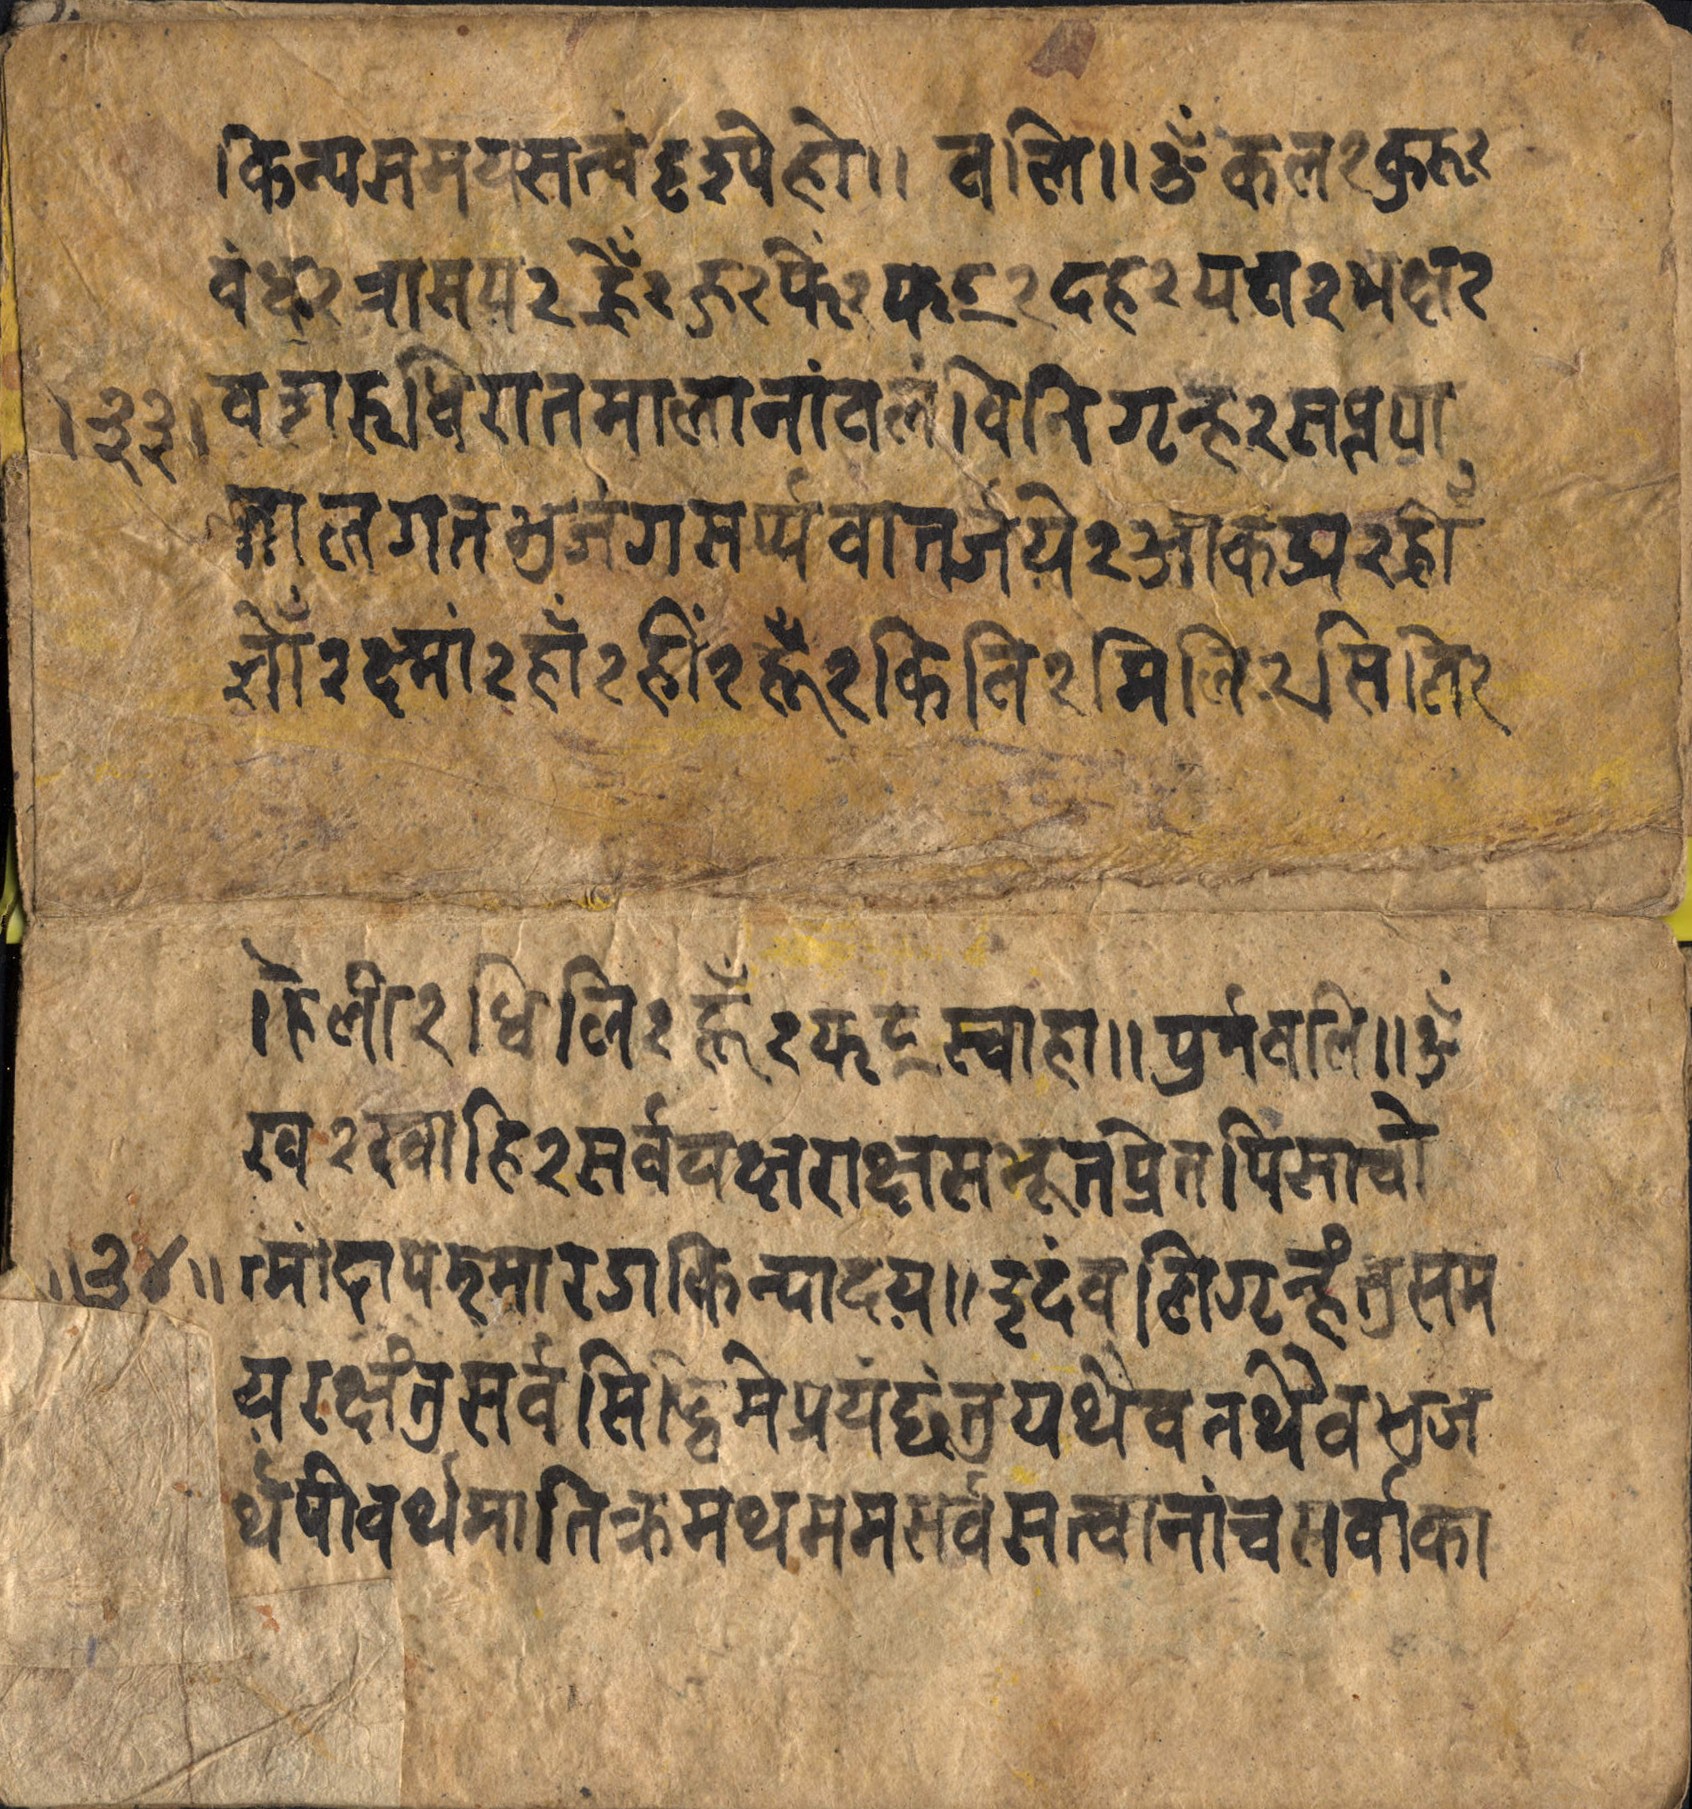 किन्यसमयसत्वं दृश्यहो॥ वलि॥ ॐ कल२ कुरु२
वंध२ त्रासय२ ह्रँ२ ह्र२ फें२ फट्२ दह२ पच२ भक्ष२
वशरुधिरातमालानांवलंविनिगृन्ह२ सप्तपा
तालगतभुजंगसर्प्पवातर्जये२ आकड्य२ ह्रीँ
ज्ञौँ२ क्ष्मां२ हाँ२ हीं२ ह्रूँ२ किलि२ मिलि२ सिलि२
।३३।
हिली२ धिलि२ ह्रूँ२ फट् स्वाहा॥ पुर्नवलि॥ ॐ
खख२ खाहि२ सर्वयक्षराक्षसभूतप्रेतपिसाचो
न्मांदापस्मारडाकिन्यादय॥ इदंवलिंगृन्हंतुसम
यरक्षंतुसर्वसिद्धिमेप्रयंछंतुयथैवतथैवभुज
र्थपीवर्थमातिक्रमथममसर्वसत्वानांचसर्वाका
॥३४॥